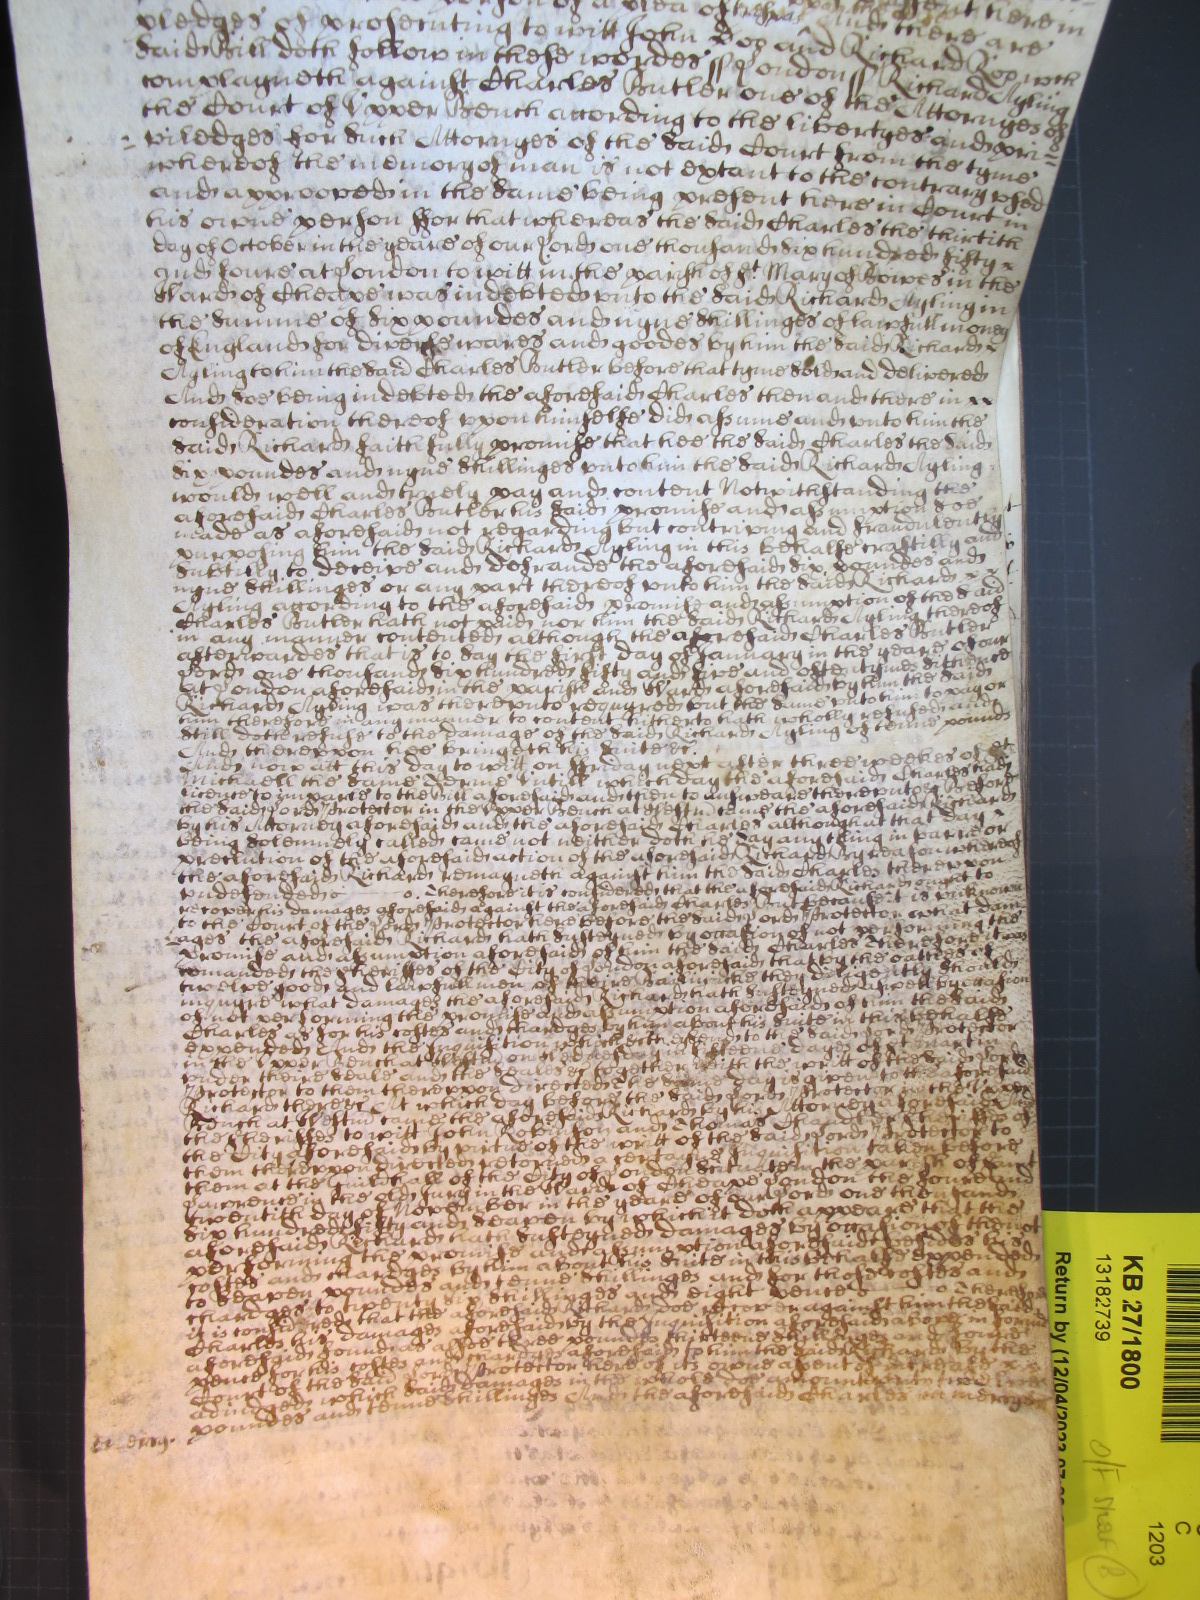 person of a plea of trespas upon the Case
pledges of prosecuting to witt John Doe and Richard Roe which
said Bill doth follow in these wordes ss London ss Richard Ayling
complayneth against Charles Butler one of the Attorneyes of
the Court of Upper Bench according to the libertyes and pri=
=viledges for such Attorneyes of the said Court from the tyme
whereof the memory of man is not extant to the contrary used
and approoved in the same being present here in Court in
his owne person ffor that whereas the said Charles the thirtith
day of October in the yeare of our Lord one thousand six hundred fifty
and foure at London to witt in the parish of St Mary of Bowes in the
Ward of Cheape was indebted unto the said Richard Ayling in
the summe of six poundes and nyne shillinges of lawfull money
of England for diverse wares and goodes by him the said Richard
Ayling to him the said Charles Butler before that tyme sold and delivered
And soe being indebted the aforesaid Charles then and there in
consideration thereof upon himselfe did assume and unto him the
said Richard faithfully promise that hee the said Charles the said
six poundes and nyne shillinges unto him the said Richard Ayling
would well and truely pay and content Notwithstanding the
aforesaid Charles Butler his said promise and assumption soe
made as aforesaid not regarding but contriving and fraudulently
purposing him the said Richard Ayling in this behalfe craftilly and
subtilly to deceive and defraude the aforesaid six poundes and
nyne shillinges or any part thereof unto him the said Richard
Ayling according to the aforesaid promise and assumption of the said
Charles Butler hath not paid nor him the said Richard Ayling thereof
in any manner contented although the aforesaid Charles Butler
afterwardes that is to say the first day of January in the yeare of our
Lord one thousand six hundred fifty and five and oftentymes sithence
at London aforesaid in the parish and Ward aforesaid by him the said
Richard Ayling was thereunto requyred but the same unto him to pay or
him therefore in any manner to content hitherto hath wholly refused and
still doth refuse to the damage of the said Richard Ayling of tenne pounds
And thereupon hee bringeth his suite &c.
And now att this day to witt on Fryday next after three weekes of St
Michaell the same Terme untill which day the aforesaid Charles had
licence to imparle to the Bill aforesaid and then to answeare thereunto &c before
the said Lord Protector in the Upper Bench at Westm came the aforesaid Richard
by his Attorney aforesaid and the aforesaid Charles although at that day
being solemnely called came not neither doth he say any thing in barre or
preclution of the aforesaid action of the aforesaid Richard By reason whereof
the aforesaid Richard remayneth against him the said Charles thereupon
undefended &c Therefore it is considered that the aforesaid Richard ought to
recover his damages aforesaid against the aforesaid Charles But because it is unknowne
to the Court of the Lord Protector here before the said Lord Protector what dam=
=ages the aforesaid Richard hath susteyned by occasion of not performing the
promise and assumption aforesaid of him the said Charles Therefore it was
comanded the Sheriffes of the City of London aforesaid that by the oathes of
twelve good and lawfull men of theire Bailiwicke they diligently should
inquyre what damages the aforesaid Richard hath susteyned aswell by occasion
of not performing the promise and assumption aforesaid of him the said
Charles as for his costes and chardges by him about his suite in this behalfe
expended And the Inquisition which &c they send to the said Lord Protector
in the Upper Bench at Westm on Wednesday in fifteene dayes of St Martin
under theire seale and the seales &c together with the writt of the said Lord
Protector to them thereupon directed The same day is given to the aforesaid
Richard there &c At which day before the said Lord Protector in the Upper
Bench at Westm came the aforesaid Richard by his Attorney aforesaid And
the Sheriffes to witt John Robinson and Thomas Chandler Sheriffes of
the City aforesaid by virtue of the writt of the said Lord Protector to
them thereupon directed retorned a certaine Inquisition taken before
them at the Guildhall of the City of London scituate in the parish of Saint
Lawrence in the Old Jury in the Ward of Cheape London the foure and
twentith day of November in the yeare of our Lord one thousand
six hundred fifty and seaven by which it doth appeare that the
aforesaid Richard hath susteyned damages by occasion of the not
performing the promise and assumption aforesaid besides his
costes and chardges by him about his suite in this behalfe expended
to seaven poundes and tenne shillinges and for those costes and
chardges to twenty six shillinges and eight pence Therefore
it is considered that the aforesaid Richard doe recover against him the said
Charles his damages aforesaid by the Inquisition aforesaid above in forme
aforesaid found as alsoe three poundes thirteene shillinges and foure
pence for his costes and chardges aforesaid to him the said Richard by the
Court of the said Lord Protector here of its owne assent of increase
adiudged which said damages in the whole doe amount unto twelve
poundes and tenne shillinges And the aforesaid Charles in mercy &c
In mercy.
KB 27/1800
13182739
Return by (12/04/2023
C
1203